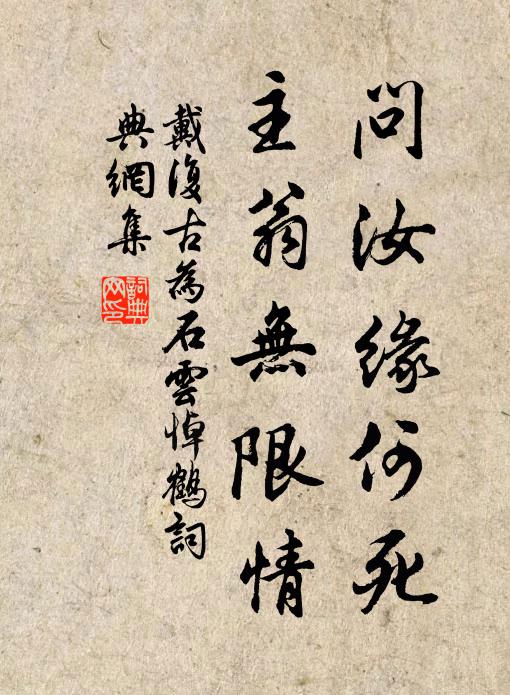 問汝緣何死
主翁無限情
戴復古為石雲悼鶴詞
典網集
詞典網印